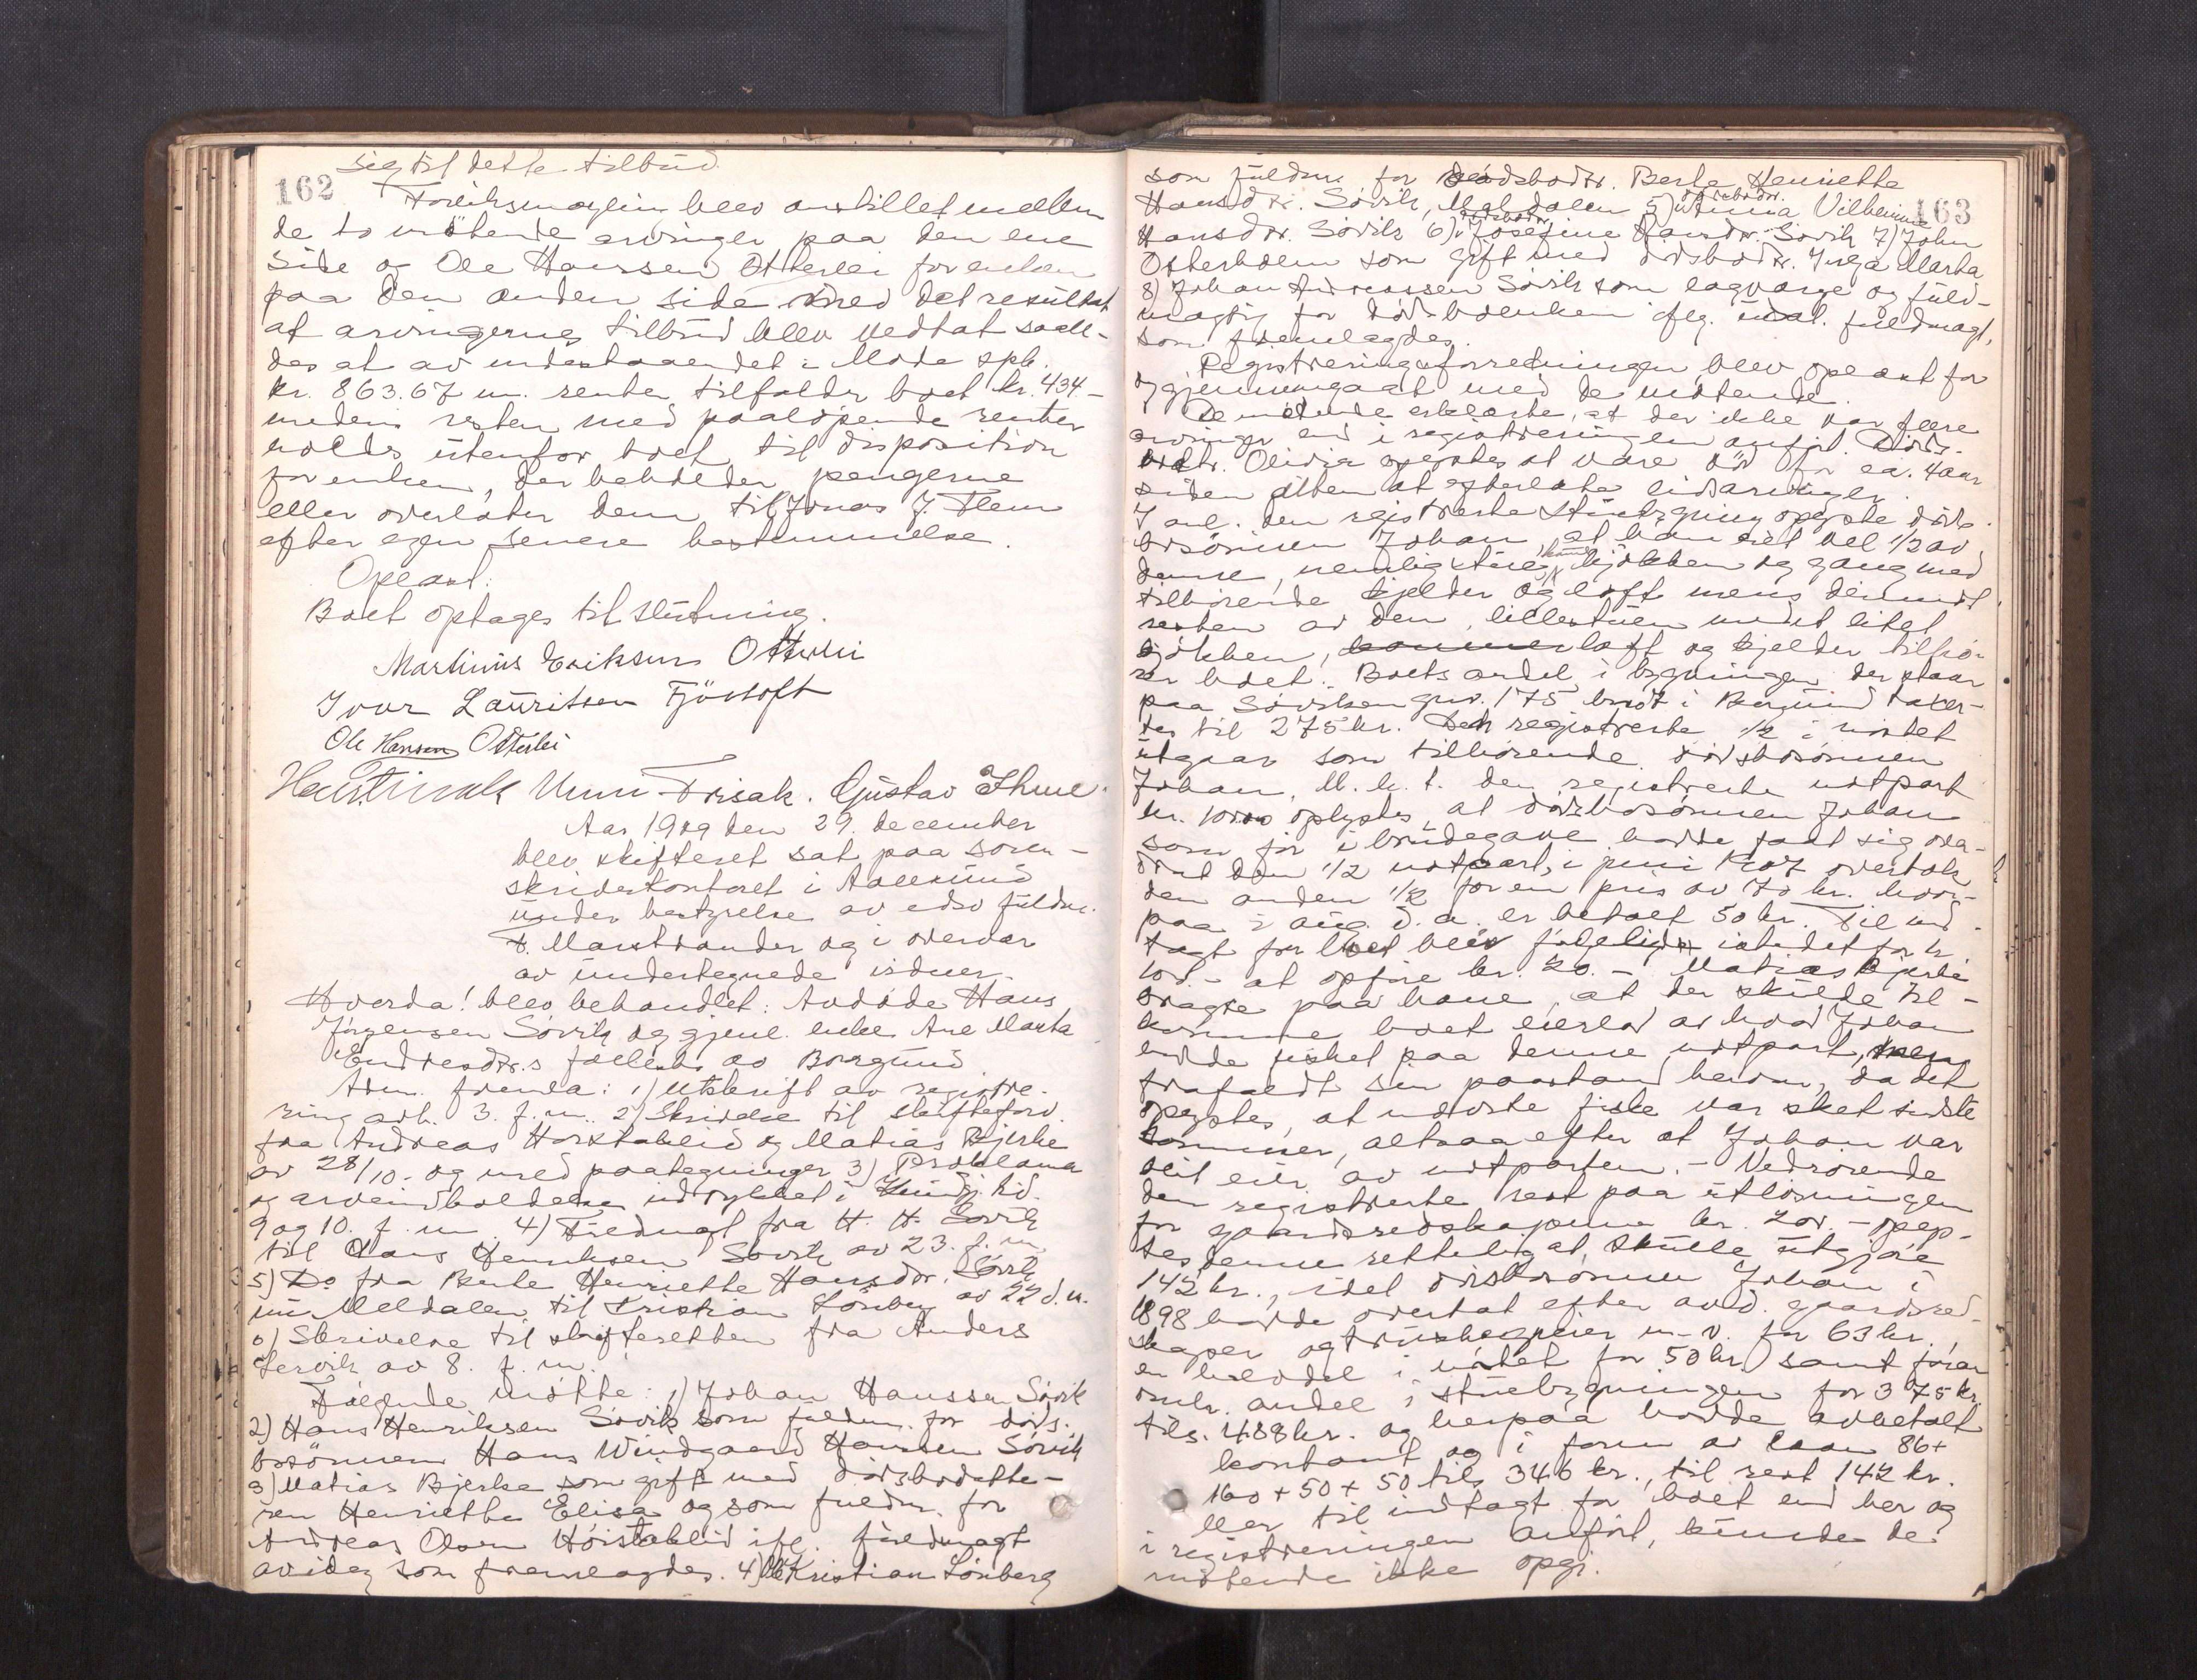 162
sig til dette tilbud.
Forliksmægling blev anstillet mellem
de to mötende arvinger paa den ene
side og Ole Hanssen Otterlei for enken
paa den anden side med det resultat
at arvingernes tilbud blev vedtat saale-
des at av indestaaendet i Molde spb.
kr. 863.67 m. renter tilfalder boet kr. 434 -
medens resten med paalöpende renter
holdes utenfor boet til disposition
for enken, der beholder pengerne
eller overlater dem til Jonas J. Flem
efter egen senere bestemmelse.
Oplæst.
Boet optages til slutning.
Martinus Eriksen Otterlei
Ivar Lauritsen Fjörtoft
Ole Hansen Otterlei
Unni Frisak. Gustav Thue.
Aar 1909 den 29. december
blev skifteret sat paa soren-
skriverkontoret i Aalesund
under bestyrelse av edsv fuldm.
T. Marstrander og i overvær
av undertegnede vidner.
Hvorda! blev behandlet: Avdöde Hans
Jörgensen Sövik og gjenl. enke Ane Marta
Endresdtr.s fællesbo av Borgund
Adm. fremla: 1) Utskrift av registre-
ring avh. 3. f. m. 2) Skrivelse til skifteforv.
fra Andreas Horstableid og Matias Bjerke
av 28/10 - og med paategninger 3) Proklama
og arveindkaldelse indrykket i Kundgj. tid.
9 og 10. f. m. 4) Fuldmagt fra H. H. Sövik
til Hans Henriksen Sövik av 23. f. m.
5) Do fra Berte Henriette Hansdtr. Sövik
nu Meldalen til Kristian Lönberg av 22 d. m.
6) Skrivelse til skifteretten fra Anders
Lervik av 8. f. m.
Fölgende mötte: 1) Johan Hanssen Sövik
2) Hans Henriksen Sövik som fuldm. for döds-
bosönnen Hans Windgaard Hanssen Sövik
3) Matias Bjerke som gift med dödsbodatte-
ren Henriette Elisa og som fuldm. for
Andreas Olsen Horstableid ifl. fuldmagt
av idag som fremlagdes. 4) Kristian Lönberg
163
som fuldm. for dödsbodtr. Berte Henriette
Hansdtr. Sövik, Meldalen 5) dödsbodtr. Anna Vilhelmine
Hansdtr. Sövik 6) dödsbodtr. Josefine Hansdtr. Sövik 7) John
Osterholm som gift med dödsbodtr. Inga Marta
8) Johan Andreassen Sövik som lagværge og fuld-
mægtig for dödsboenken iflg. fuldmagt,
som fremlagdes.
Registreringsforretningen blev oplæst for
og gjennemgaat med de mötende.
De mötende erklærte, at der ikke var flere
arvinger end i registreringen anfört. Döds-
bodtr. Olivia oplystes at være död for ca. 4 aar
siden uten at efterlate livsarvinger.
I anl. den registrerte stuebygning oplyste döds-
bosönnen Johan, at han eiet vel 1/2 av
denne, nemlig stue, kjökken og gang med
tilhörende kjelder og loft mens derimot
resten av den, lillestuen med litet
kjökken, loft og kjelder tilhö-
rer boet. Boets andel i bygningen der staar
paa Söviken gnr. 175 bno 1 i Borgund takser-
tes til 275 kr. Den registrerte 1/2 i nöstet
utgaar som tilhörende dödsbosönnen
Johan. M. h. t. den registrerte notpart
kr. 100.00 oplystes, at dödsbosönnen Johan
som för i brudegave hadde faat sig over-
drat den 1/2 notpart, i juni 1907 overtok
den anden 1/2 for en pris av 70 kr. hvor-
paa i aug. d. a. er betalt 50 kr. Til ind-
tægt for boet blev fölgelig istedetfor kr.
100.- at opföre kr. 20. - Matias Bjerke
at der skulde til-
komme boet av hvad Johan
hadde fisket paa denne notpart, men
frafaldt sin paastand herom, da det
oplystes, at nævnte fiske var sket sidste
sommer, altsaa efter at Johan var
blit eier av notparten. - Vedrörende
den registrerte rest paa utlösningen
for gaardsredskaperne kr. 200. - oplys-
tes denne rettelig at skulle utgjöre
142 kr., idet dödsbosönnen Johan i
1898 hadde overtat efter avd. gaardsred-
skaper og m. v. for 63 kr.,
en halvdel i nötet for 50 kr. samt foran
omh. andel i stuebygningen for 375 kr.
tils. 488 kr. og herpaa hadde avbetalt
kontant og i form av laan 86 +
160 + 50 + 50 tils 346 kr., til rest 142 kr.
Mer til indtægt for boet end her og
i registreringen anfört, kunde de
mötende ikke opgi.